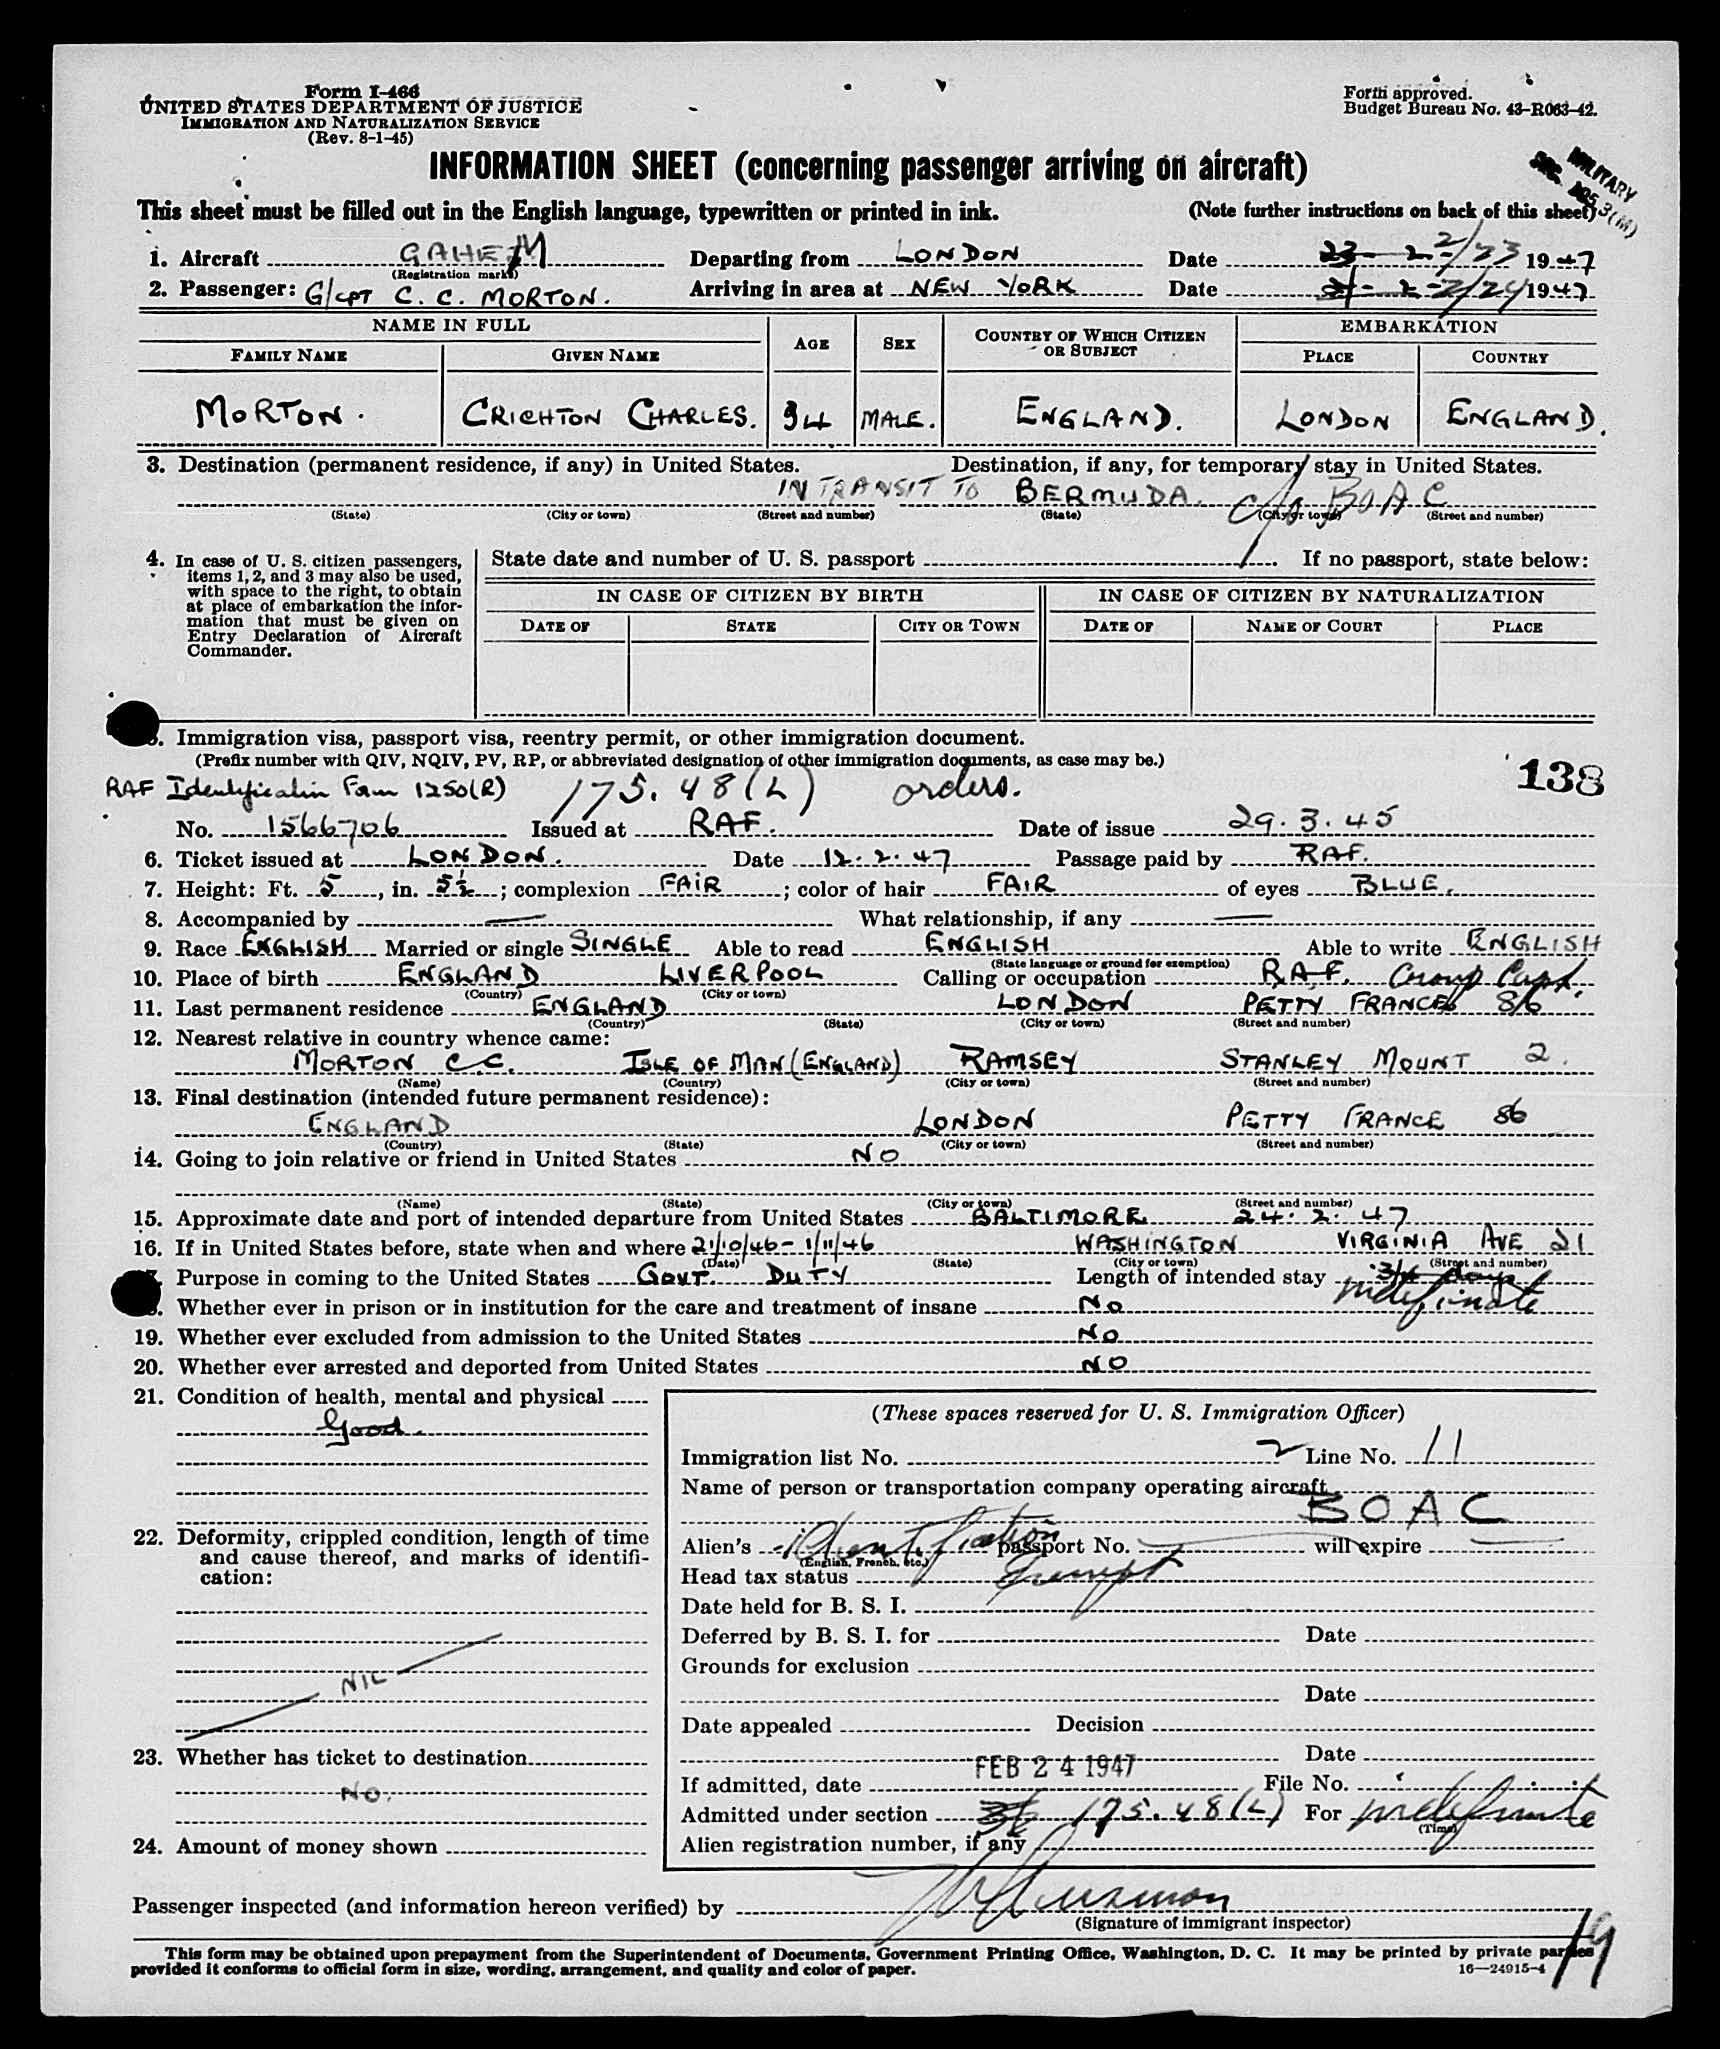 Form I-466
UNITED STATES DEPARTMENT OF JUSTICE
IMMIGRATION AND NATURALIZATION SERVICE
(Rev. 8-1-45)
Form approved.
Budget Bureau No. 43-R063-42.
INFORMATION SHEET (concerning passenger arriving on aircraft)
MILITARY
This sheet must be filled out in the English language, typewritten or printed in ink. (Note further instructions on back of this sheet)
1. Aircraft GAHEM Departing from LONDON Date 2/23 1947
(Registration marks)
2. Passenger: G/CPT C. C. MORTON. Arriving in area at NEW YORK Date 2/24 1947
NAME IN FULL AGE SEX COUNTRY OF WHICH CITIZEN OR SUBJECT EMBARKATION
FAMILY NAME GIVEN NAME PLACE COUNTRY
MORTON. CRICHTON CHARLES. 34 MALE. ENGLAND. LONDON ENGLAND.
3. Destination (permanent residence, if any) in United States. Destination, if any, for temporary stay in United States.
IN TRANSIT TO BERMUDA. c/o BOAC
(State) (City or town) (Street and number) (State) (City or town) (Street and number)
4. In case of U. S. citizen passengers, items 1, 2, and 3 may also be used, with space to the right, to obtain at place of embarkation the information that must be given on Entry Declaration of Aircraft Commander.
State date and number of U. S. passport If no passport, state below:
IN CASE OF CITIZEN BY BIRTH IN CASE OF CITIZEN BY NATURALIZATION
DATE OF STATE CITY OR TOWN DATE OF NAME OF COURT PLACE
5. Immigration visa, passport visa, reentry permit, or other immigration document.
(Prefix number with QIV, NQIV, PV, RP, or abbreviated designation of other immigration documents, as case may be.)
138
RAF Identification Form 1250(R) 175.48(L) orders.
No. 1566706 Issued at RAF. Date of issue 29.3.45
6. Ticket issued at LONDON. Date 12.2.47 Passage paid by RAF.
7. Height: Ft. 5, in. 5½; complexion FAIR; color of hair FAIR of eyes BLUE.
8. Accompanied by — What relationship, if any —
9. Race ENGLISH Married or single SINGLE Able to read ENGLISH Able to write ENGLISH
(State language or ground for exemption)
10. Place of birth ENGLAND LIVERPOOL Calling or occupation R.A.F. Group Capt.
(Country) (City or town)
11. Last permanent residence ENGLAND LONDON PETTY FRANCE 86
(Country) (State) (City or town) (Street and number)
12. Nearest relative in country whence came:
MORTON C.C. ISLE OF MAN (ENGLAND) RAMSEY STANLEY MOUNT 2.
(Name) (Country) (City or town) (Street and number)
13. Final destination (intended future permanent residence):
ENGLAND LONDON PETTY FRANCE 86
(Country) (State) (City or town) (Street and number)
14. Going to join relative or friend in United States NO
(Name) (State) (City or town) (Street and number)
15. Approximate date and port of intended departure from United States BALTIMORE 24.2.47
16. If in United States before, state when and where 21/10/46 - 1/11/46 WASHINGTON VIRGINIA AVE 21
(Date) (State) (City or town) (Street and number)
17. Purpose in coming to the United States GOVT. DUTY Length of intended stay 3/4 days indefinate
18. Whether ever in prison or in institution for the care and treatment of insane NO
19. Whether ever excluded from admission to the United States NO
20. Whether ever arrested and deported from United States NO
21. Condition of health, mental and physical
Good.
22. Deformity, crippled condition, length of time and cause thereof, and marks of identification:
NIL
23. Whether has ticket to destination
NO.
24. Amount of money shown
(These spaces reserved for U. S. Immigration Officer)
Immigration list No. 2 Line No. 11
Name of person or transportation company operating aircraft
BOAC
Alien's identification passport No. will expire
(English, French, etc.)
Head tax status Exempt
Date held for B. S. I.
Deferred by B. S. I. for Date
Grounds for exclusion
Date
Date appealed Decision
Date
If admitted, date FEB 24 1947 File No.
Admitted under section 175.48(L) For indefinite
(Time)
Alien registration number, if any
Passenger inspected (and information hereon verified) by
(Signature of immigrant inspector)
This form may be obtained upon prepayment from the Superintendent of Documents, Government Printing Office, Washington, D. C. It may be printed by private parties
provided it conforms to official form in size, wording, arrangement, and quality and color of paper.
16—24915-4
19